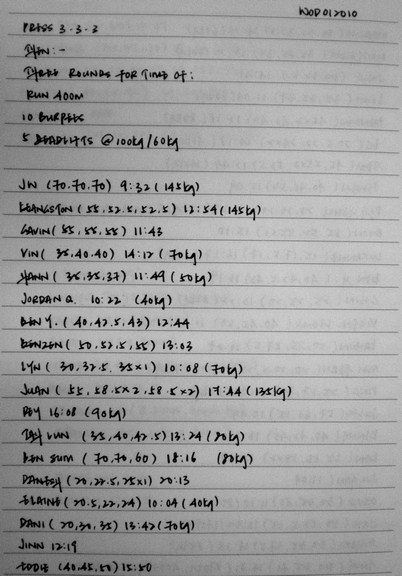 WOD012010
PRESS 3.3.3
THEN:-
THREE ROUNDS FOR TIME OF:
RUN 400M
10 BURPEES
5 DEADLIFTS @100kg/60kg
JW (70.70.70) 9:32 (145kg)
LEANGSTON (55,52.5,52.5) 12:54 (145kg)
GAVIN (55,55,55) 11:43
VIN (35,40.40) 14:12 (70kg)
HANN (35,35,37) 11:49 (50kg)
JORDAN Q. 10:22 (40kg)
BEN Y. (40,42.5,43) 12:44
BENZEN (50,52.5,55) 13:03
LYN (30,32.5, 35x1) 10:08 (70kg)
JUAN (55, 58.5x2, 58.5x2) 17:44 (135kg)
ROY 16:08 (90kg)
TAH LUN (35,40,42.5) 13:24 (80kg)
BEN SUM (70,70,60) 18:16 (80kg)
DANESH (20,22.5,25x1) 20:13
ELAINE (20.5,22,24) 10:04 (40kg)
DANI (20,30,35) 13:42 (70kg)
JINN 12:19
EDDIE (40,45,50) 15:50